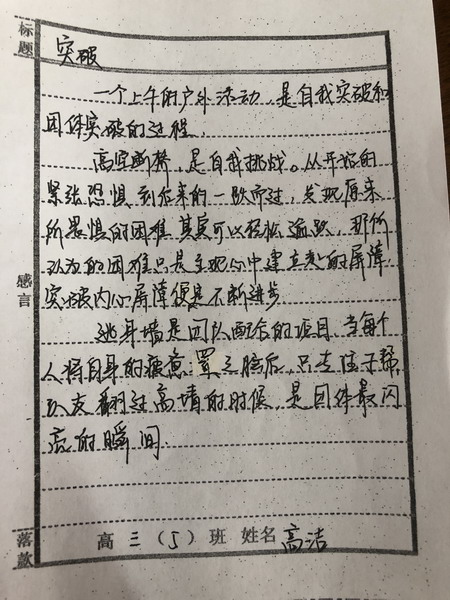 标题
突破
一个上午的户外活动，是自我突破和
团体突破的过程。
高空断桥，是自我挑战。从开始的
紧张恐惧到后来的一跃而过，发现原来
所畏惧的困难其实可以轻松逾跃，那所
认为的困难只是主观心中建立起的屏障，
突破内心屏障便是不断进步
感言
逃身墙是团队配合的项目，当每个
人将自身的疲惫置之脑后，只去帮
队友翻过高墙的时候，是团体最闪
亮的瞬间
落款
高三（5）班 姓名 高洁